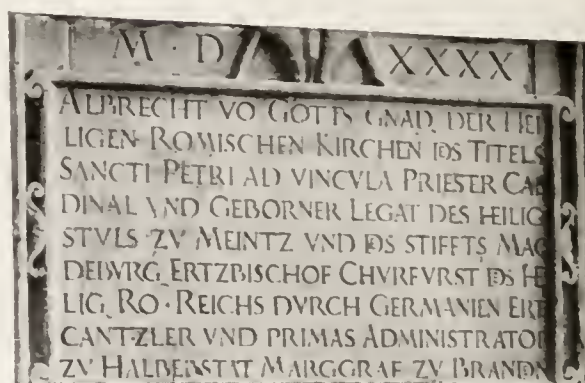 M · D XXXX
ALBRECHT VO GOTTS GNAD DER HEI
LIGEN ROMISCHEN KIRCHEN DS TITELS
SANCTI PETRI AD VINCVLA PRIESTER CAR
DINAL VND GEBORNER LEGAT DES HEILIG
STVLS ZV MEINTZ VND DS STIFFTS MAG
DEBVRG ERTZBISCHOF CHVRFVRST DS HE
LIG RO · REICHS DVRCH GERMANIEN ERT
CANTZLER VND PRIMAS ADMINISTRATOR
ZV HALBERSTAT MARGGRAF ZV BRANDN